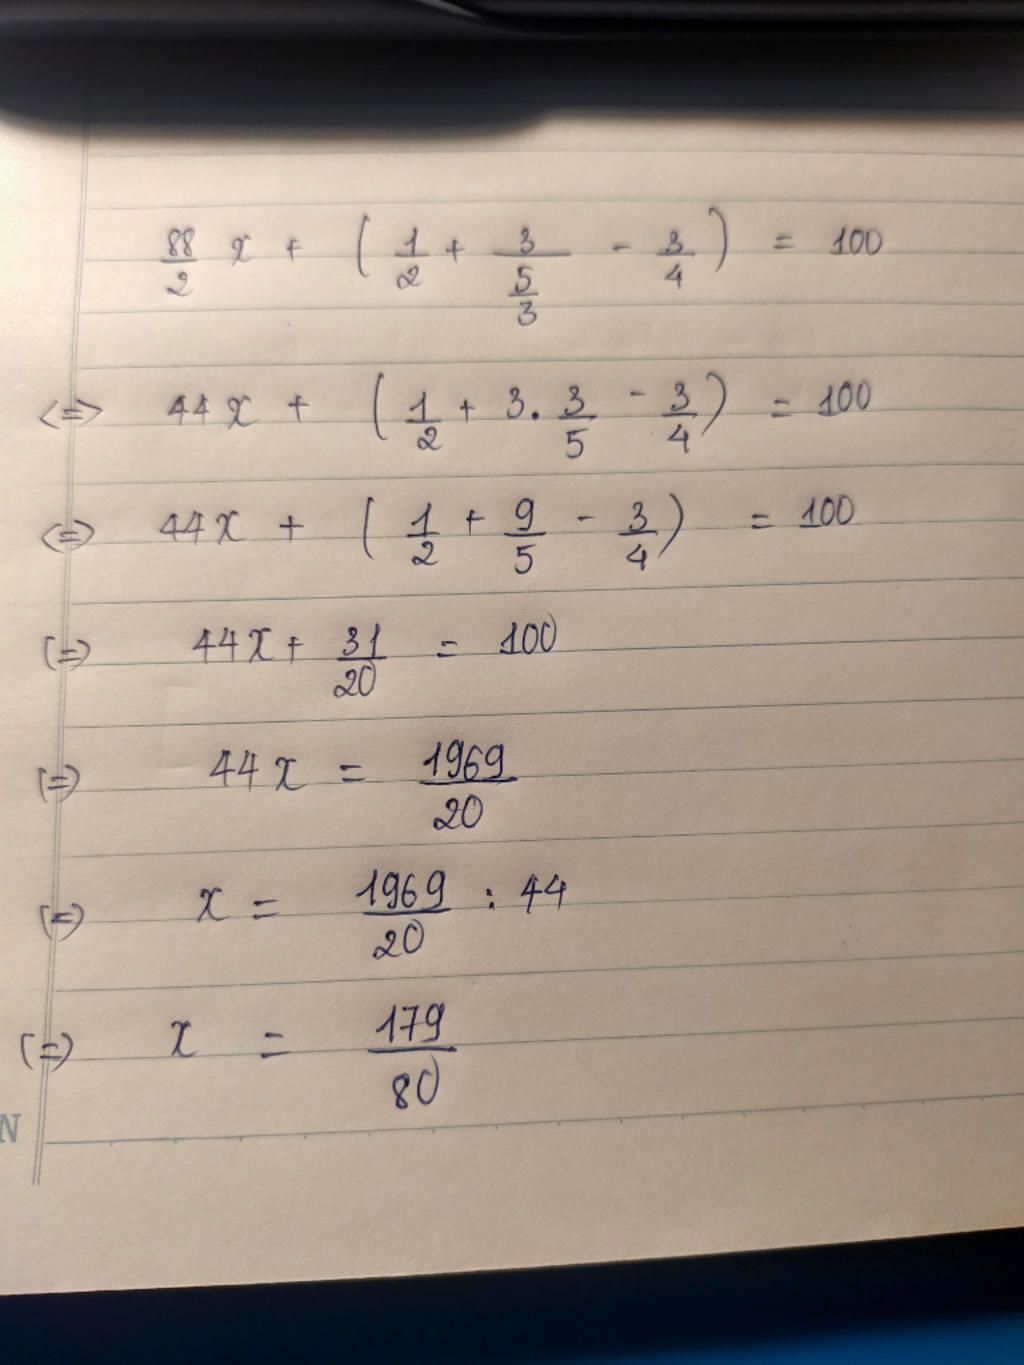 88/2 x + ( 1/2 + 3/(5/3) - 3/4 ) = 100
<=> 44x + ( 1/2 + 3 . 3/5 - 3/4 ) = 100
(=) 44x + ( 1/2 + 9/5 - 3/4 ) = 100
(=) 44x + 31/20 = 100
(=) 44x = 1969/20
(=) x = 1969/20 : 44
(=) x = 179/80
N